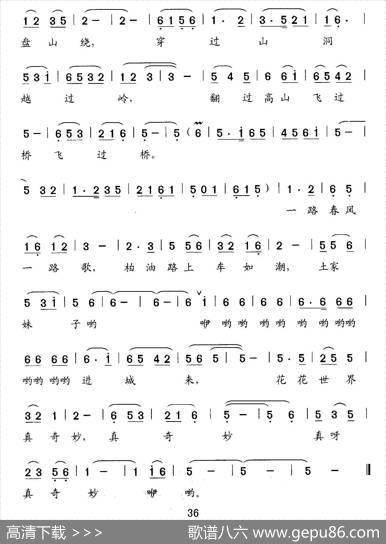 1 2 3 5 | 2 - | 2 - | 6 1 5 6 | 1 · 2 | 3 · 5 2 1 | 1 · 6 |
盘山绕, 穿过山洞
5 3 1 | 6 5 3 2 | 1 2 3 | 3 | 5 4 5 | 6 1 6 | 6 5 4 2 |
越过岭, 翻过高山飞过
5 - | 6 5 3 | 2 1 6 | 5 - | 5 ( 6 | 5 · 1 6 5 | 4 5 6 1 |
桥飞过桥。
5 3 2 | 1 · 2 3 5 | 2 1 6 1 | 5 0 1 | 6 1 5 ) | 1 · 2 | 6 5 |
一路春风
1 6 1 2 | 3 - | 2 · 3 | 5 5 6 | 3 2 1 6 | 2 - | 5 5 6 |
一路歌, 柏油路上车如潮, 土家
5 3 1 | 5 6 | 6 - | 6 - | 6 1 | 6 6 6 | 6 · 6 6 6 |
妹子哟 咿哟哟哟哟哟哟哟
6 6 6 6 | 6 · 1 | 6 5 4 2 | 5 6 5 | 5 - | 5 · 5 | 2 5 |
哟哟哟哟进城来, 花花世界
3 2 1 | 2 - | 6 5 3 | 2 1 6 | 5 - | 5 | 5 3 5 |
真奇妙, 真奇妙 真呀
2 3 5 6 | 1 - | 1 - | 1 6 | 5 - | 5 - | 5 - ‖
真奇妙咿哟。
36
高清下载 >>>
歌谱八六 www.gepu86.com